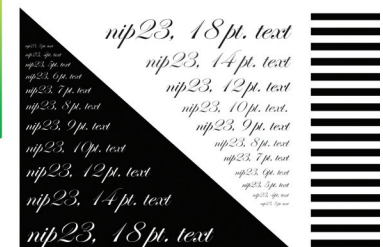 nip23, 18pt. text
nip23, 14pt. text
nip23, 12pt. text
nip23, 10pt. text.
nip23, 9pt. text
nip23, 8pt. text
nip23, 7pt. text
nip23, 6pt. text
nip23, 5pt. text
nip23, 4pt. text
nip23, 3pt. text
nip23, 3pt. text
nip23, 4pt. text
nip23, 5pt. text
nip23, 6pt. text
nip23, 7pt. text
nip23, 8pt. text
nip23, 9pt. text
nip23, 10pt. text
nip23, 12pt. text
nip23, 14pt. text
nip23, 18pt. text